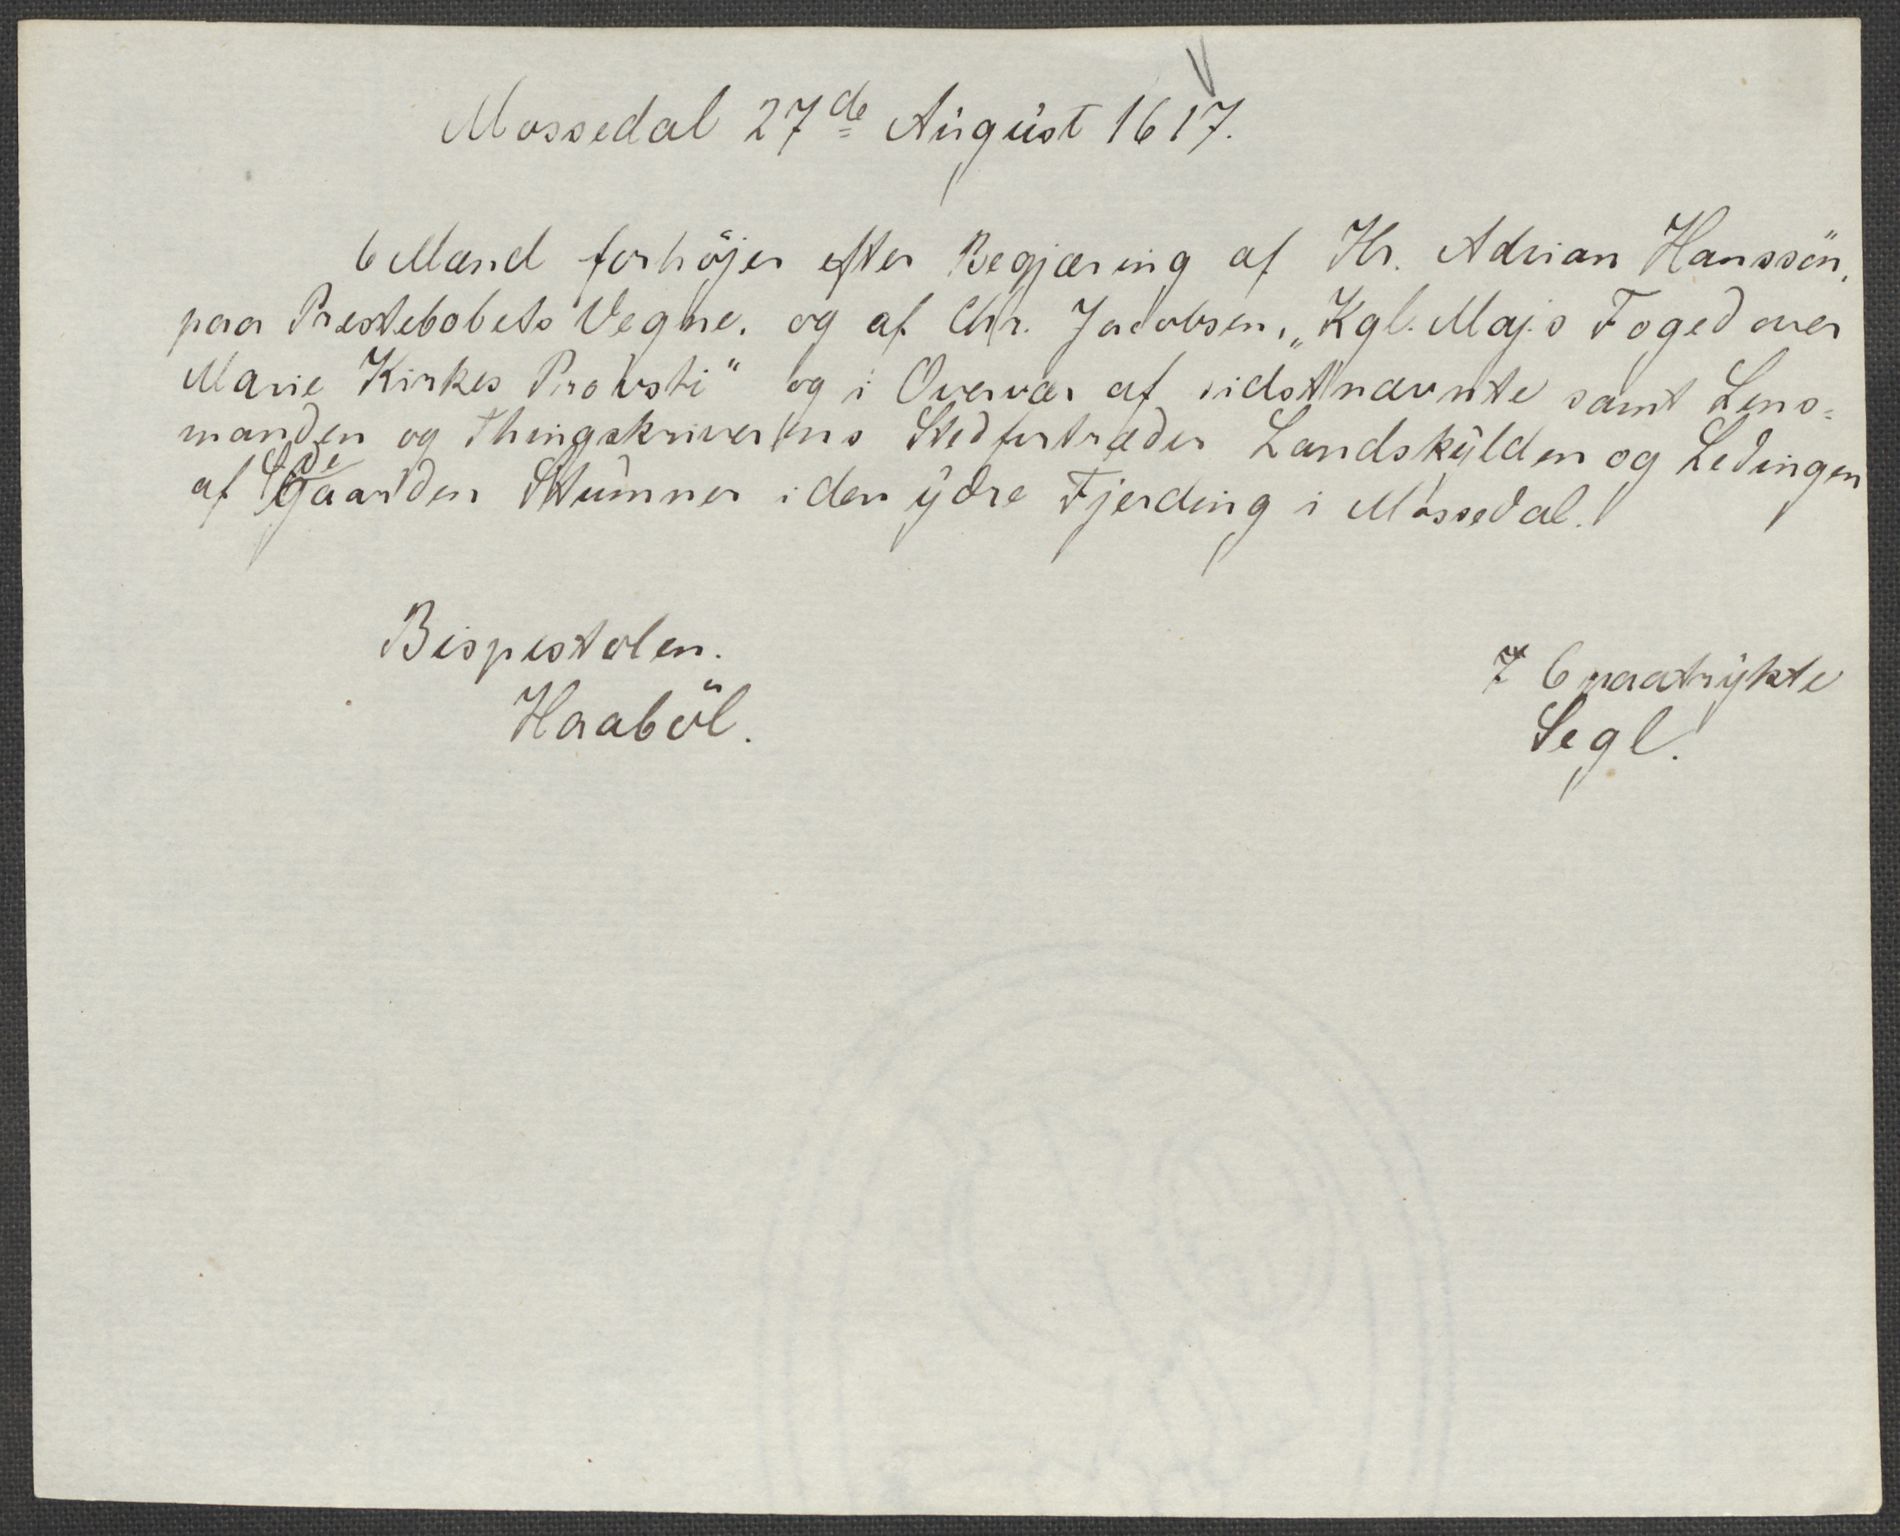 Mossedal 27de August 1617.
6 Mænd forhöjer efter Begjæring af Hr. Adrian Hanssön,
paa Prestebolets Vegne, og af Chr. Jacobsen, „Kgl. Maj.s Foged over
Marie Kirkes Provsti" og i Overvær af sidstnævnte samt Lens=
manden og Thingskriverens Stedfortræder Landskylden og Ledingen
af Ödegaarden Stumner i den ydre Fjerding i Mossedal.
Bispestolen.
Haaböl.
6 paatrykte
Segl.